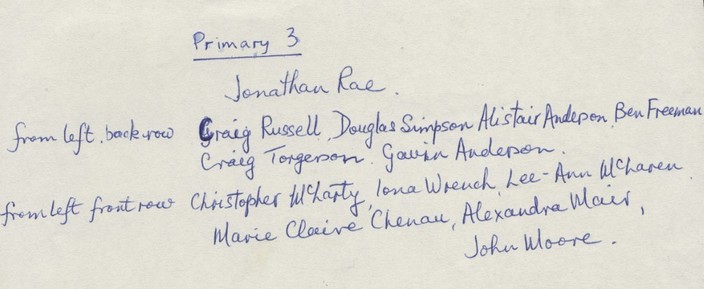 Primary 3
Jonathan Rae.
from left. back row Craig Russell, Douglas Simpson Alistair Anderson, Ben Freeman
Craig Torgerson. Gavin Anderson.
from left front row Christopher McLarty, Iona Wrench, Lee-Ann McLaren.
Marie Claire Chenau, Alexandra Mair,
John Moore.